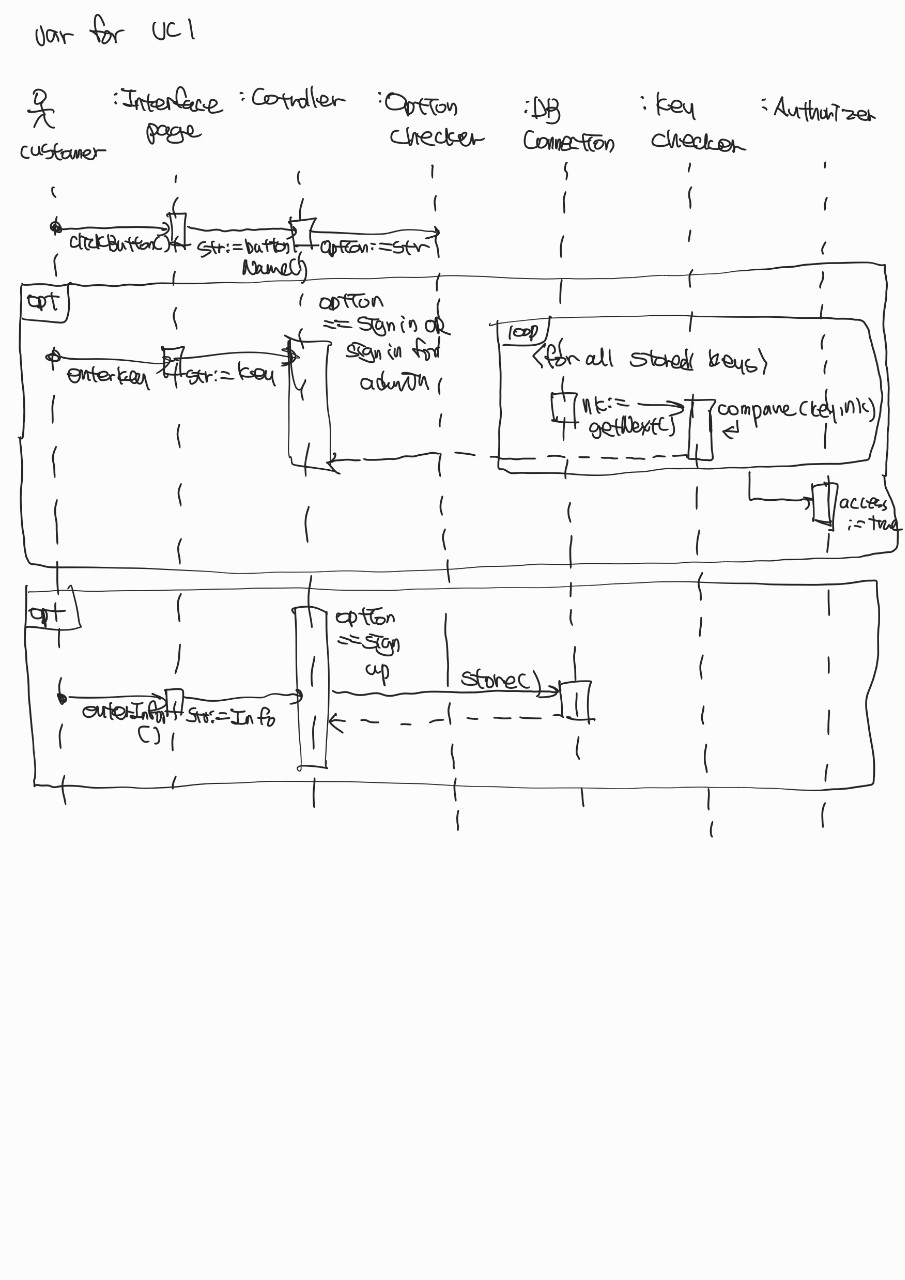 Var for UC1
customer
:Interface
page
:Cotroller
:Option
checker
:DB
Connection
:key
checker
:Authorizer
clickButton()
str:=button
Name()
option:=str
opt
option
== sign in or
sign in for
admin
enterkey
str:= key
loop
<for all stored keys>
nk:=
getNext()
compare(key,nk)
access
:=true
opt
option
==sign
up
enterInfo
()
str:=Info
store()